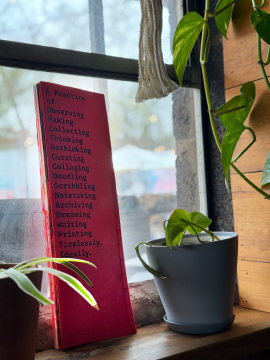 A Practice
of
Observing
Making
Collecting
Thinking
Rethinking
Curating
Collaging
Doodling
Scribbling
Notetaking
Archiving
Dreaming
Writing
Printing
Tirelessly.
Ideally.